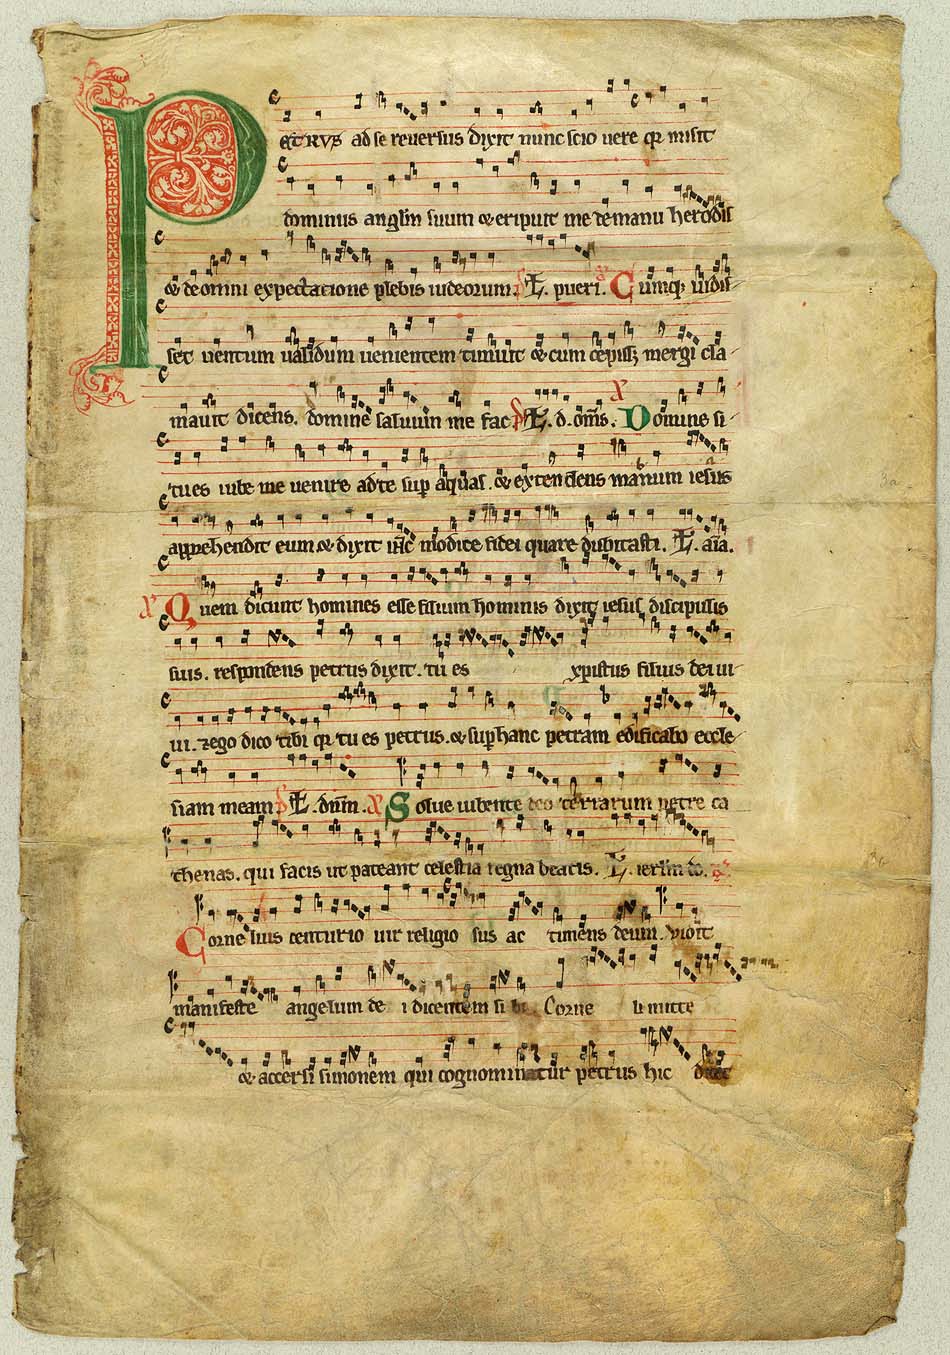 PETRVS ad se reuersus dixit nunc scio uere qr misit
dominus anglm suum & eripuit me de manu herodis
& de omni expectatione plebis iudeorum. p̃s L. pueri. a Cumq; uidis-
set uentum ualidum uenientem timuit & cum cepiss; mergi cla-
mauit dicens. domine saluum me fac p̃s L. d. om̃s. a Domine si
tu es iube me uenire ad te sup aquas. & extendens manum iesus
apprehendit eum & dixit illi modice fidei quare dubitasti. L. aĩa.
a Quem dicunt homines esse filium hominis dixit iesus discipulis
suis. respondens petrus dixit. tu es xpistus filius dei ui-
ui. & ego dico tibi qr tu es petrus. & sup hanc petram edificabo eccle-
siam meam p̃s L. dnm̃. a Solue iubente deo terrarum petre ca
thenas. qui facis ut pateant celestia regna beatis. L. ierlm̃
Cornelius centurio uir religiosus ac timens deum. uidit
manifeste angelum dei dicentem sibi Corneli mitte
& accersi simonem qui cognominatur petrus hic dicet